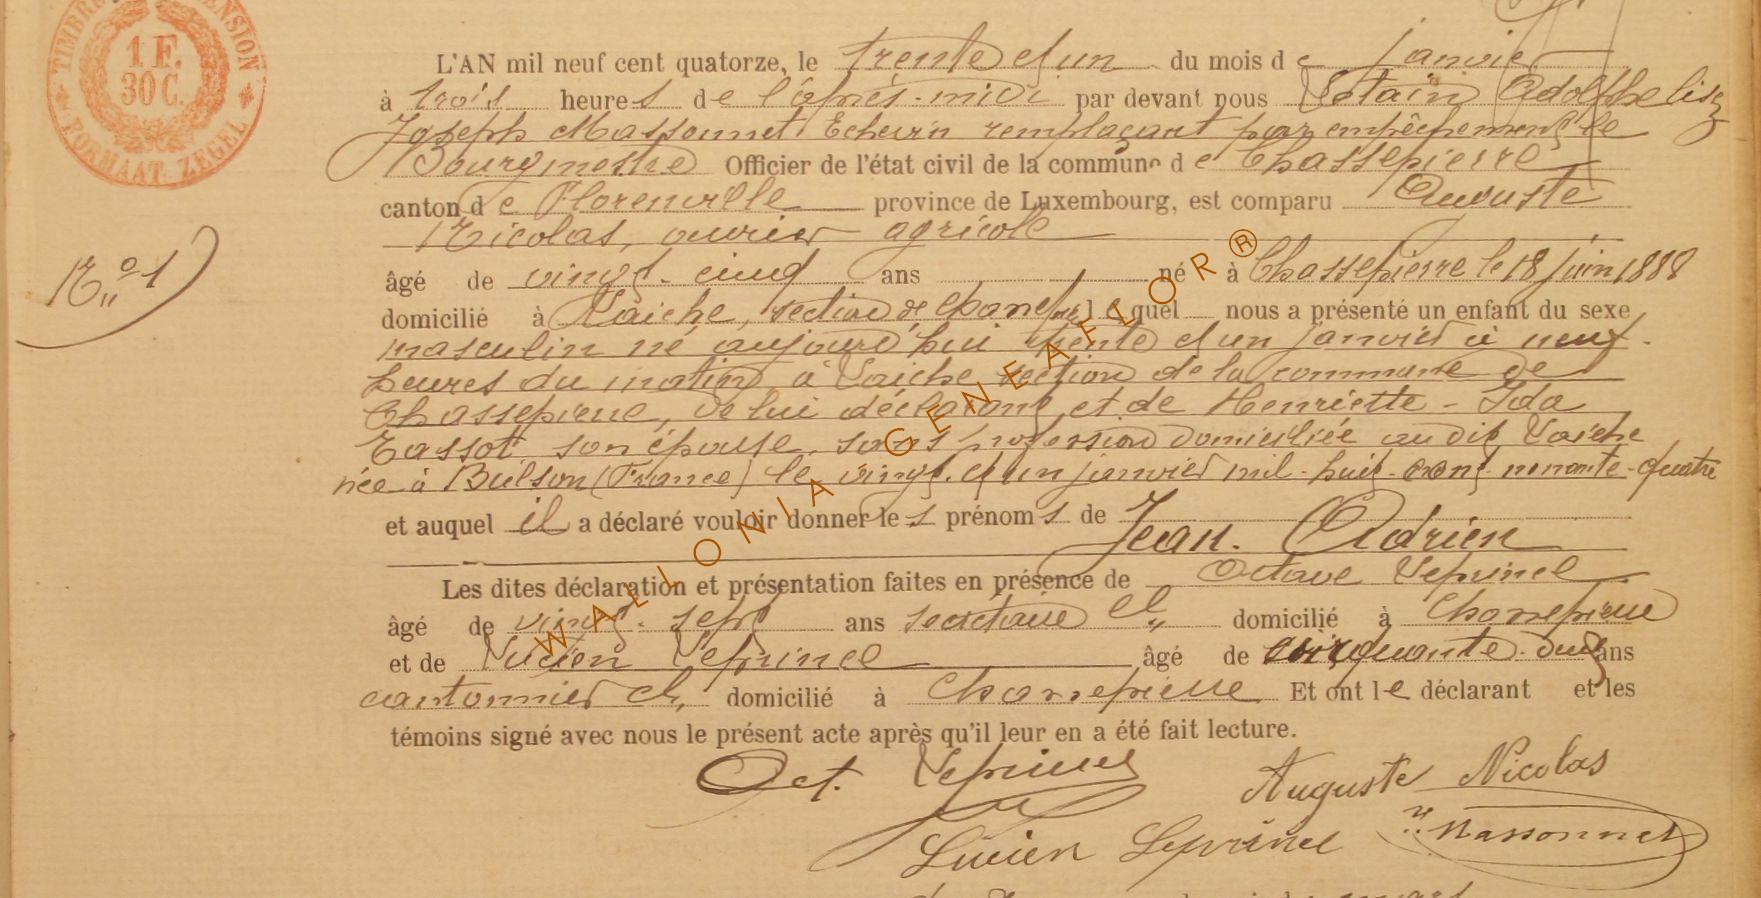 TIMBRE DIMENSION
1 F.
30 C.
FORMAAT ZEGEL
L'AN mil neuf cent quatorze, le trente et un du mois de janvier
à trois heures de l'après-midi par devant nous Adolphe
Joseph Massonnet Echevin remplaçant par empêchement le
Bourgmestre Officier de l'état civil de la commune de Chassepierre
canton de Florenville province de Luxembourg, est comparu Auguste
Nicolas, ouvrier agricole
N° 1
âgé de vingt-cinq ans né à Chassepierre le 18 juin 1888
domicilié à Laiche, section de lequel nous a présenté un enfant du sexe
masculin né aujourd'hui trente et un janvier à neuf
heures du matin à Laiche section de la commune de
Chassepierre, de lui déclarant et de Henriette-Ida
Tassot son épouse, sans profession domiciliée au dit Laiche
née à Bulson (France) le vingt et un janvier mil-huit-cent nonante-quatre
et auquel il a déclaré vouloir donner les prénoms de
Jean. Adrien
Les dites déclaration et présentation faites en présence de Octave Leprinel
âgé de vingt-sept ans secrétaire cl, domicilié à Chassepierre
et de Lucien Leprinel âgé de cinquante-deux ans
cantonnier cl, domicilié à Chassepierre Et ont le déclarant et les
témoins signé avec nous le présent acte après qu'il leur en a été fait lecture.
Oct. Leprinel
Auguste Nicolas
Lucien Leprinel
Massonnet
WALLONIA GENEAFLOR®